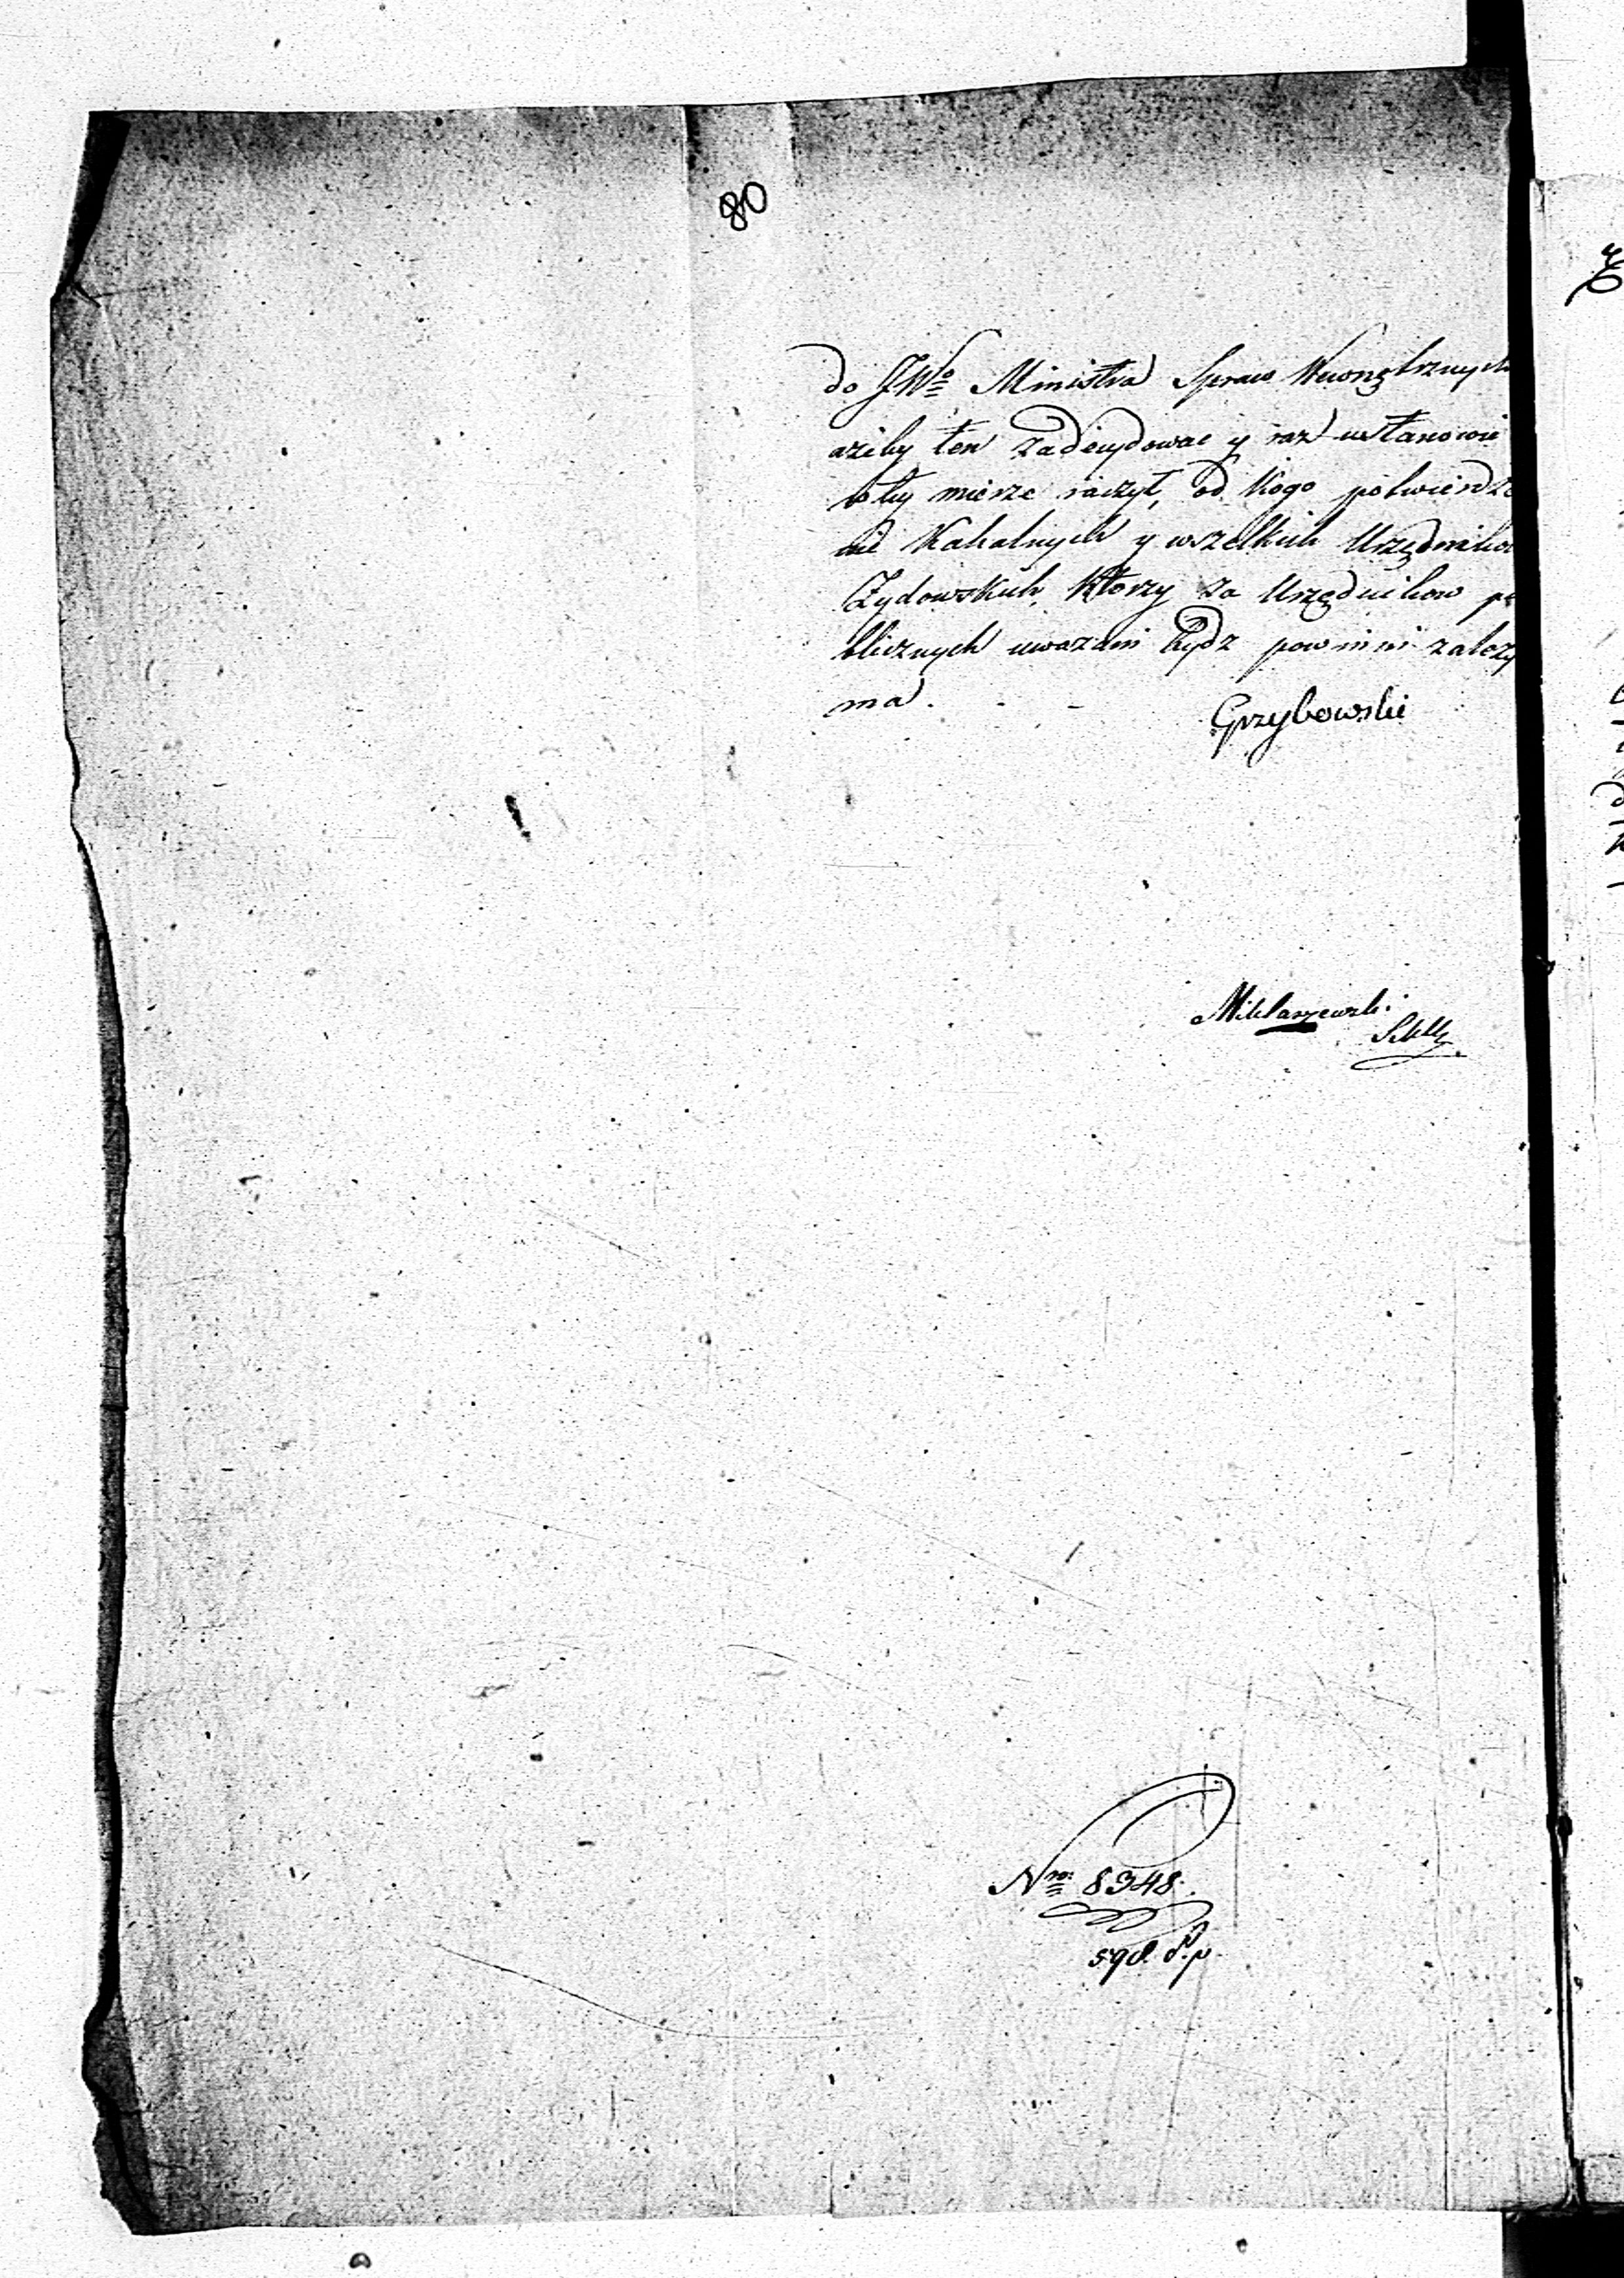 80
do JWo Ministra Spraw Wewnętrznych
ażeby ten zadecydowac y raz ustanowic
w tey mierze raczył, od kogo potwierdze
nie Kahalnych y wszelkich Urzędników
Żydowskich, Ktorzy za Urzędnikow pu
blicznych uwazani bydz powinni zależy
ma.
Grzybowski
Miklaszewski
Nro 8348.